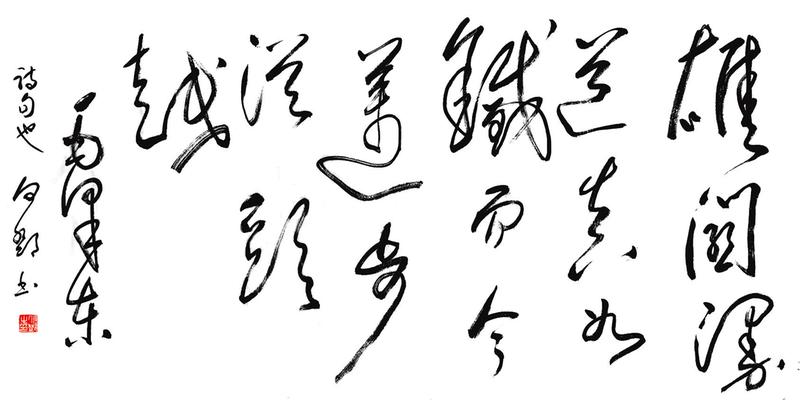 雄關漫
道真如
鐵而今
邁步
從頭
越
毛澤東
詩句也